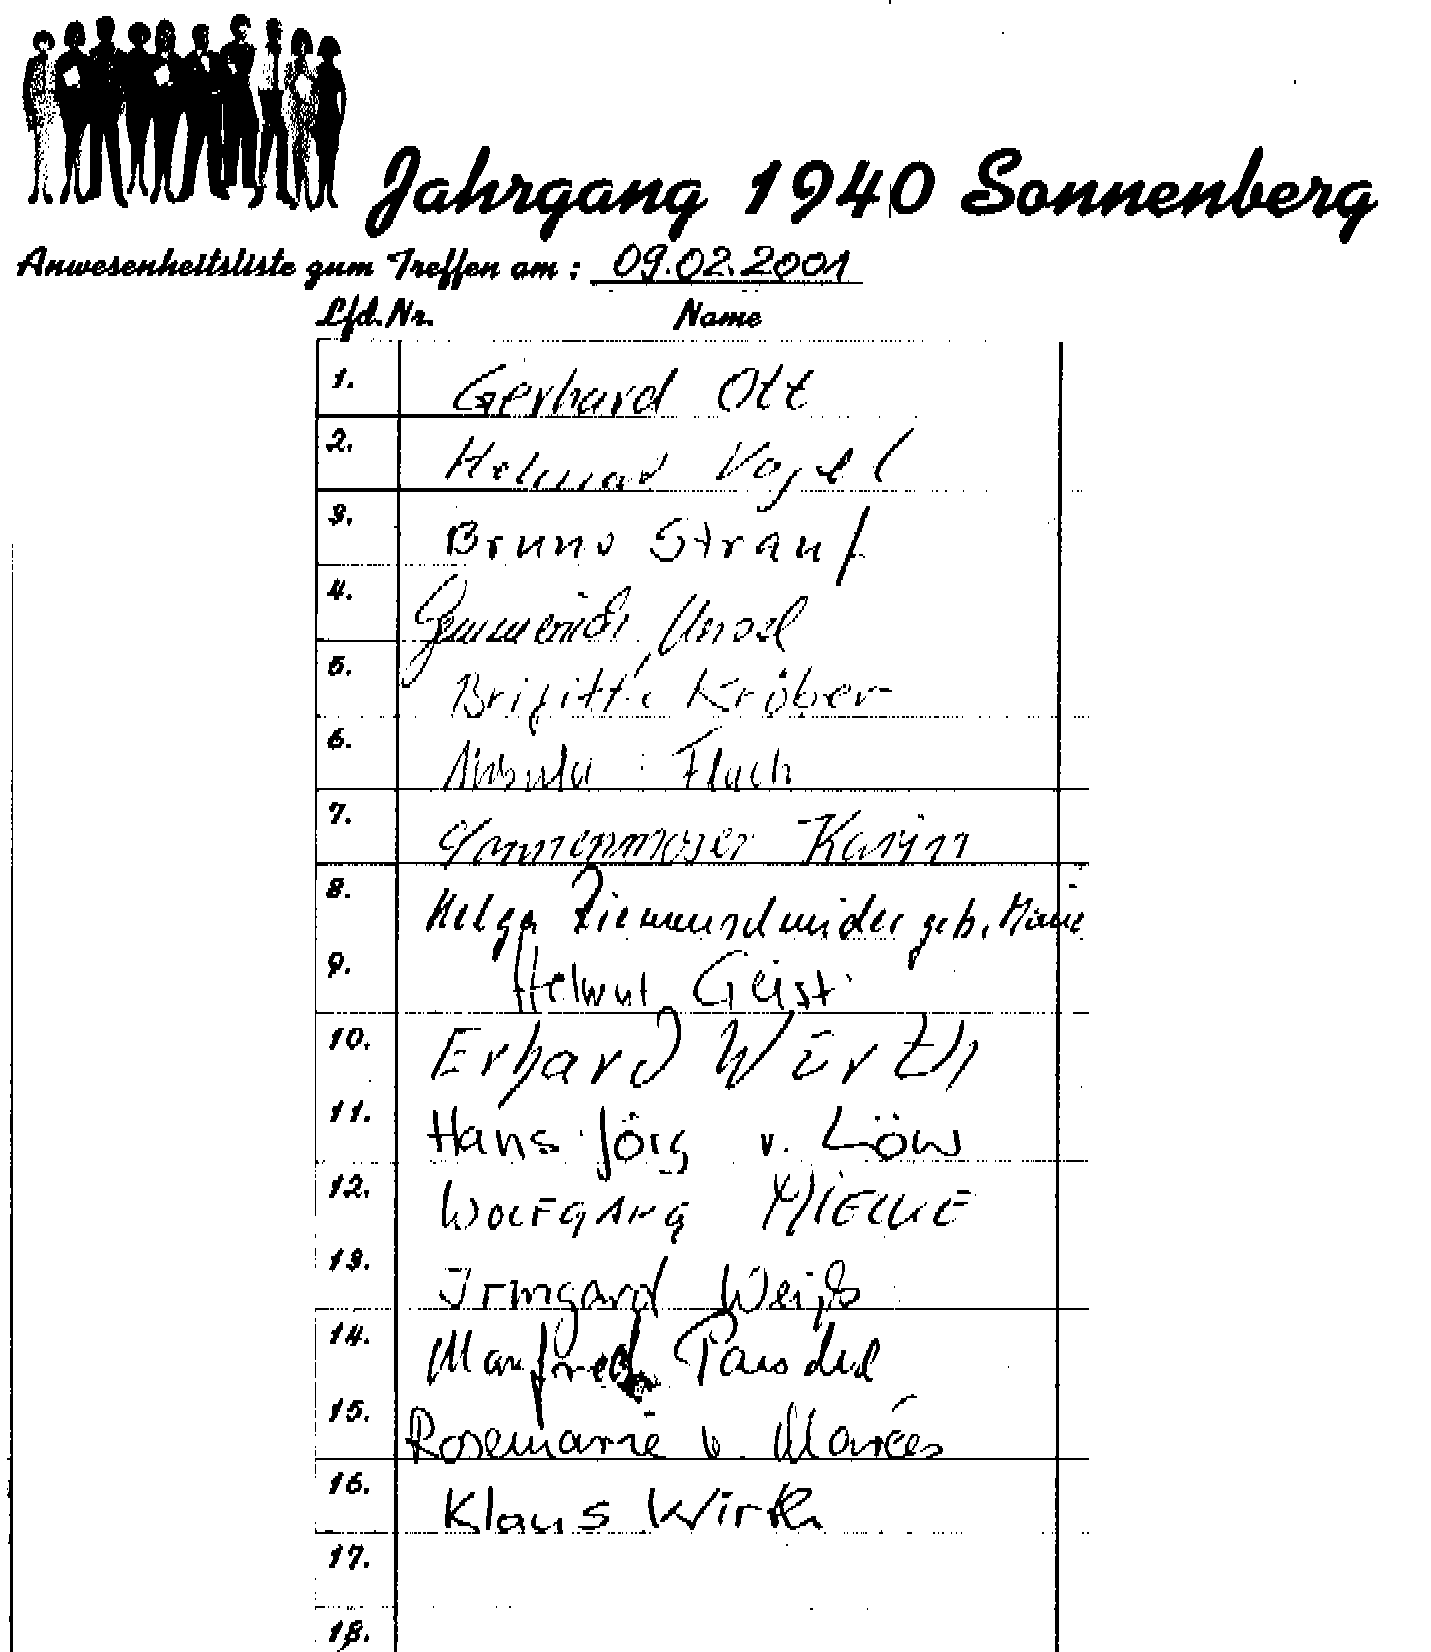 Jahrgang 1940 Sonnenberg
Anwesenheitsliste zum Treffen am : 09.02.2001
Lfd.Nr. Name
1. Gerhard Ott
2. Helmar Vogel
3. Bruno Strauß
4. Ursel
5. Brigitte Kröber
6. Ursula Flach
7. Karin
8. Helga geb.
9. Helmut Geist
10. Erhard Würth
11. Hans Jörg v. Löw
12. WOLFGANG MIELKE
13. Irmgard Weiß
14. Manfred
15. Rosemarie v. Marées
16. Klaus Wirth
17.
18.